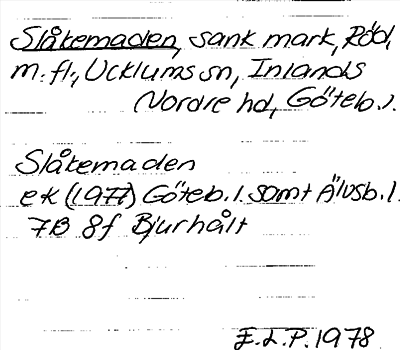 Slåkemaden, sank mark, Röd,
m. fl., Ucklums sn, Inlands
Nordre hd, Göteb. l.
Slåkemaden
ek (1977) Göteb. l. samt Älvsb. l.
7B 8f Bjurhålt
E.L.P. 1978